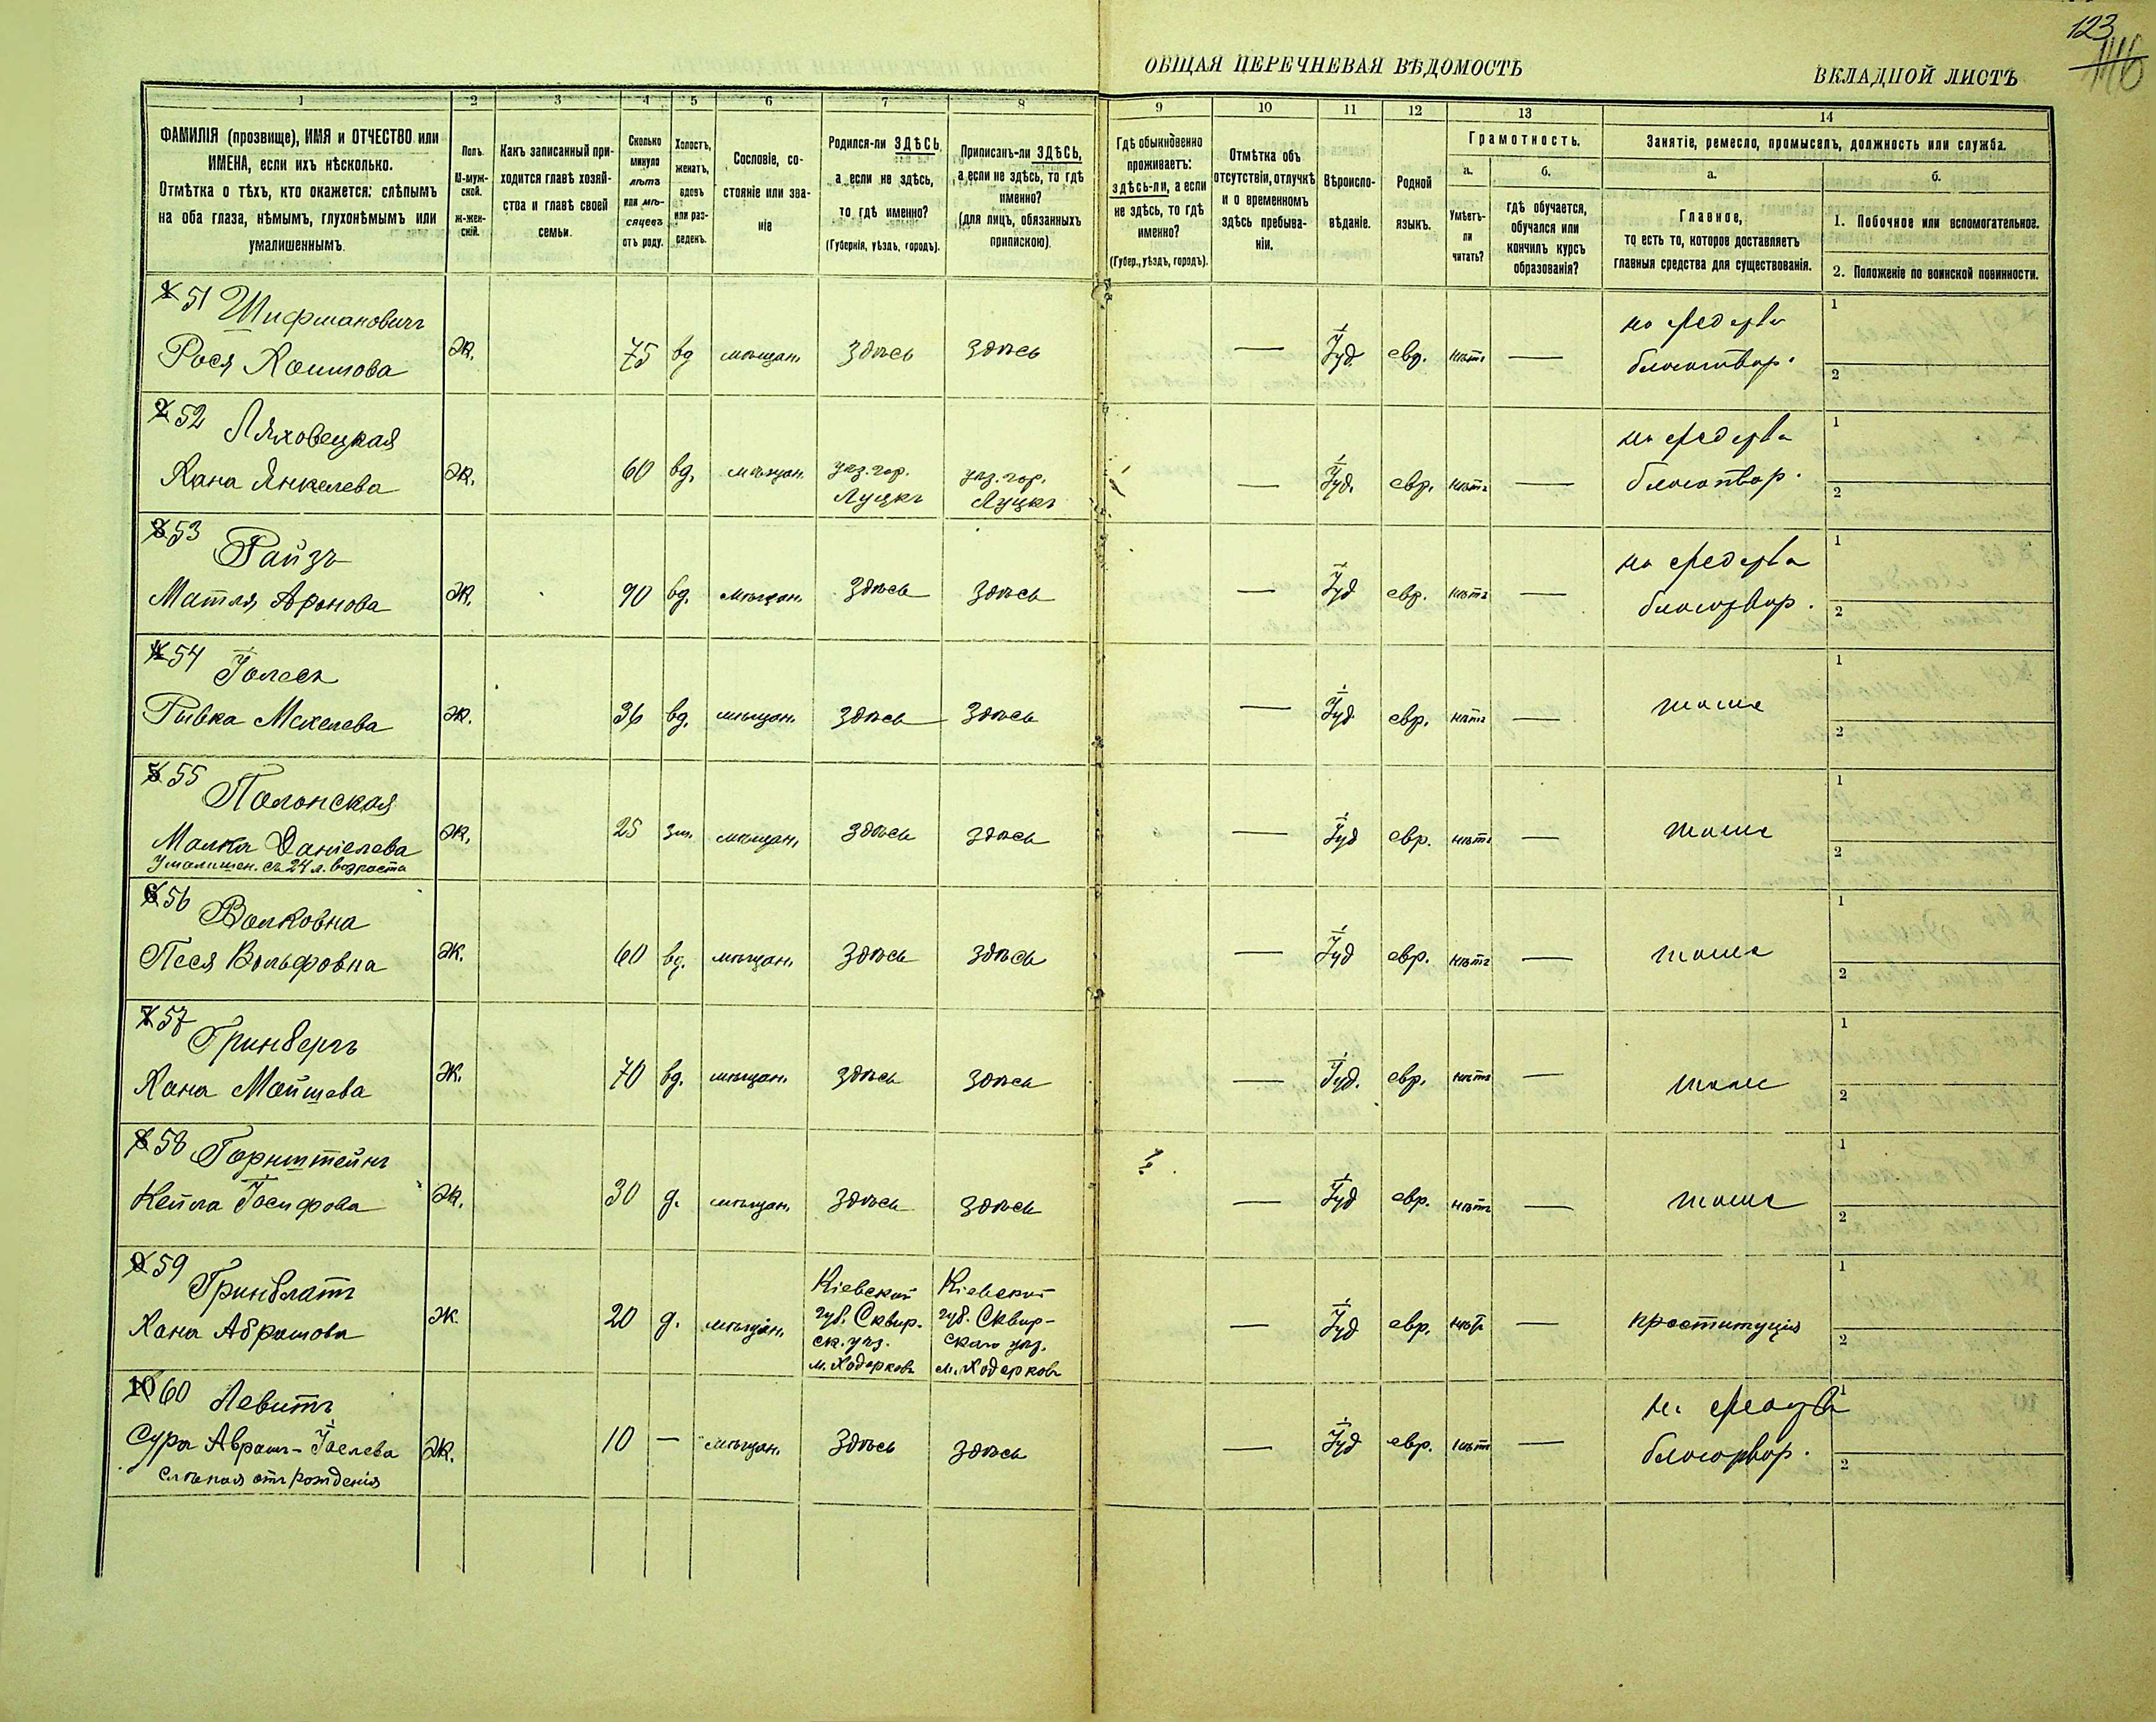 123
146
ОБЩАЯ ПЕРЕЧНЕВАЯ ВѢДОМОСТЬ
ВКЛАДНОЙ ЛИСТЪ
1 2 3 4 5 6 7 8 9 10 11 12 13 14
ФАМИЛІЯ (прозвище), ИМЯ и ОТЧЕСТВО или
ИМЕНА, если ихъ нѣсколько.
Отмѣтка о тѣхъ, кто окажется: слѣпымъ
на оба глаза, нѣмымъ, глухонѣмымъ или
умалишеннымъ.
Полъ.
М-муж-
ской.
ж-жен-
скій.
Какъ записанный при-
ходится главѣ хозяй-
ства и главѣ своей
семьи.
Сколько
минуло
лѣтъ
или мѣ-
сяцевъ
отъ роду.
Холостъ,
женатъ,
вдовъ
или раз-
веденъ.
Сословіе, со-
стояніе или зва-
ніе
Родился-ли ЗДѢСЬ,
а если не здѣсь,
то гдѣ именно?
(Губернія, уѣздъ, городъ).
Приписанъ-ли ЗДѢСЬ,
а если не здѣсь, то гдѣ
именно?
(для лицъ, обязанныхъ
припискою).
Гдѣ обыкновенно
проживаетъ:
здѣсь-ли, а если
не здѣсь, то гдѣ
именно?
(Губер., уѣздъ, городъ).
Отмѣтка объ
отсутствіи, отлучкѣ
и о временномъ
здѣсь пребыва-
ніи.
Вѣроиспо-
вѣданіе.
Родной
языкъ.
Грамотность.
а.
Умѣетъ-
ли
читать?
б.
гдѣ обучается,
обучался или
кончилъ курсъ
образованія?
Занятіе, ремесло, промыселъ, должность или служба.
а.
Главное,
то есть то, которое доставляетъ
главныя средства для существованія.
б.
1. Побочное или вспомогательное.
2. Положеніе по воинской повинности.
1 51 Шифмановичъ
Рося Хаимова
Ж. 75 вд мѣщан. здѣсь здѣсь — Іуд. евр. нѣтъ —
на средства
благотвор.
1
2
2 52 Ляховецкая
Хана Янкелева
Ж. 60 вд. мѣщан.
уѣз. гор.
Луцкъ
уѣз. гор.
Луцкъ
— Іуд. евр. нѣтъ —
на средства
благотвор.
1
2
3 53 Райзъ
Матля Аронова
Ж. 90 вд. мѣщан. здѣсь здѣсь — Іуд евр. нѣтъ —
на средства
благотвор.
1
2
4 54 Іолесъ
Рывка Мехелева
Ж. 36 вд. мѣщан. здѣсь здѣсь — Іуд. евр. нѣтъ —
тоже
1
2
5 55 Полонская
Малка Даніелева
Умалишен. съ 24 л. возраста
Ж. 25 зм. мѣщан. здѣсь здѣсь — Іуд евр. нѣтъ —
тоже
1
2
6 56 Волковна
Песя Вольфовна
Ж. 60 вд. мѣщан. здѣсь здѣсь — Іуд евр. нѣтъ —
тоже
1
2
7 57 Гринбергъ
Хана Мойшева
Ж. 70 вд. мѣщан. здѣсь здѣсь — Іуд. евр. нѣтъ —
тоже
1
2
8 58 Горнштейнъ
Кейла Іосифова
Ж. 30 д. мѣщан. здѣсь здѣсь — Іуд евр. нѣтъ —
тоже
1
2
9 59 Гринблатъ
Хана Абрамова
Ж. 20 д. мѣщан.
Кіевской
губ. Сквир.
ск. уѣз.
м. Ходорковъ
Кіевской
губ. Сквир-
скаго уѣз.
м. Ходорковъ
— Іуд евр. нѣтъ —
проституція
1
2
10 60 Левитъ
Сура Аврамъ-Іоелева
слѣпая отъ рожденія
Ж. 10 — мѣщан. здѣсь здѣсь — Іуд евр. нѣтъ —
на средства
благотвор.
1
2